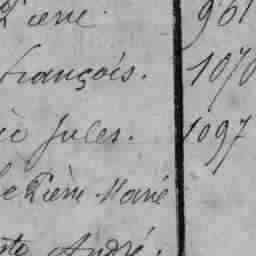 Pierre. 961
François. 1070
Jules. 1097
Pierre Marie
André.